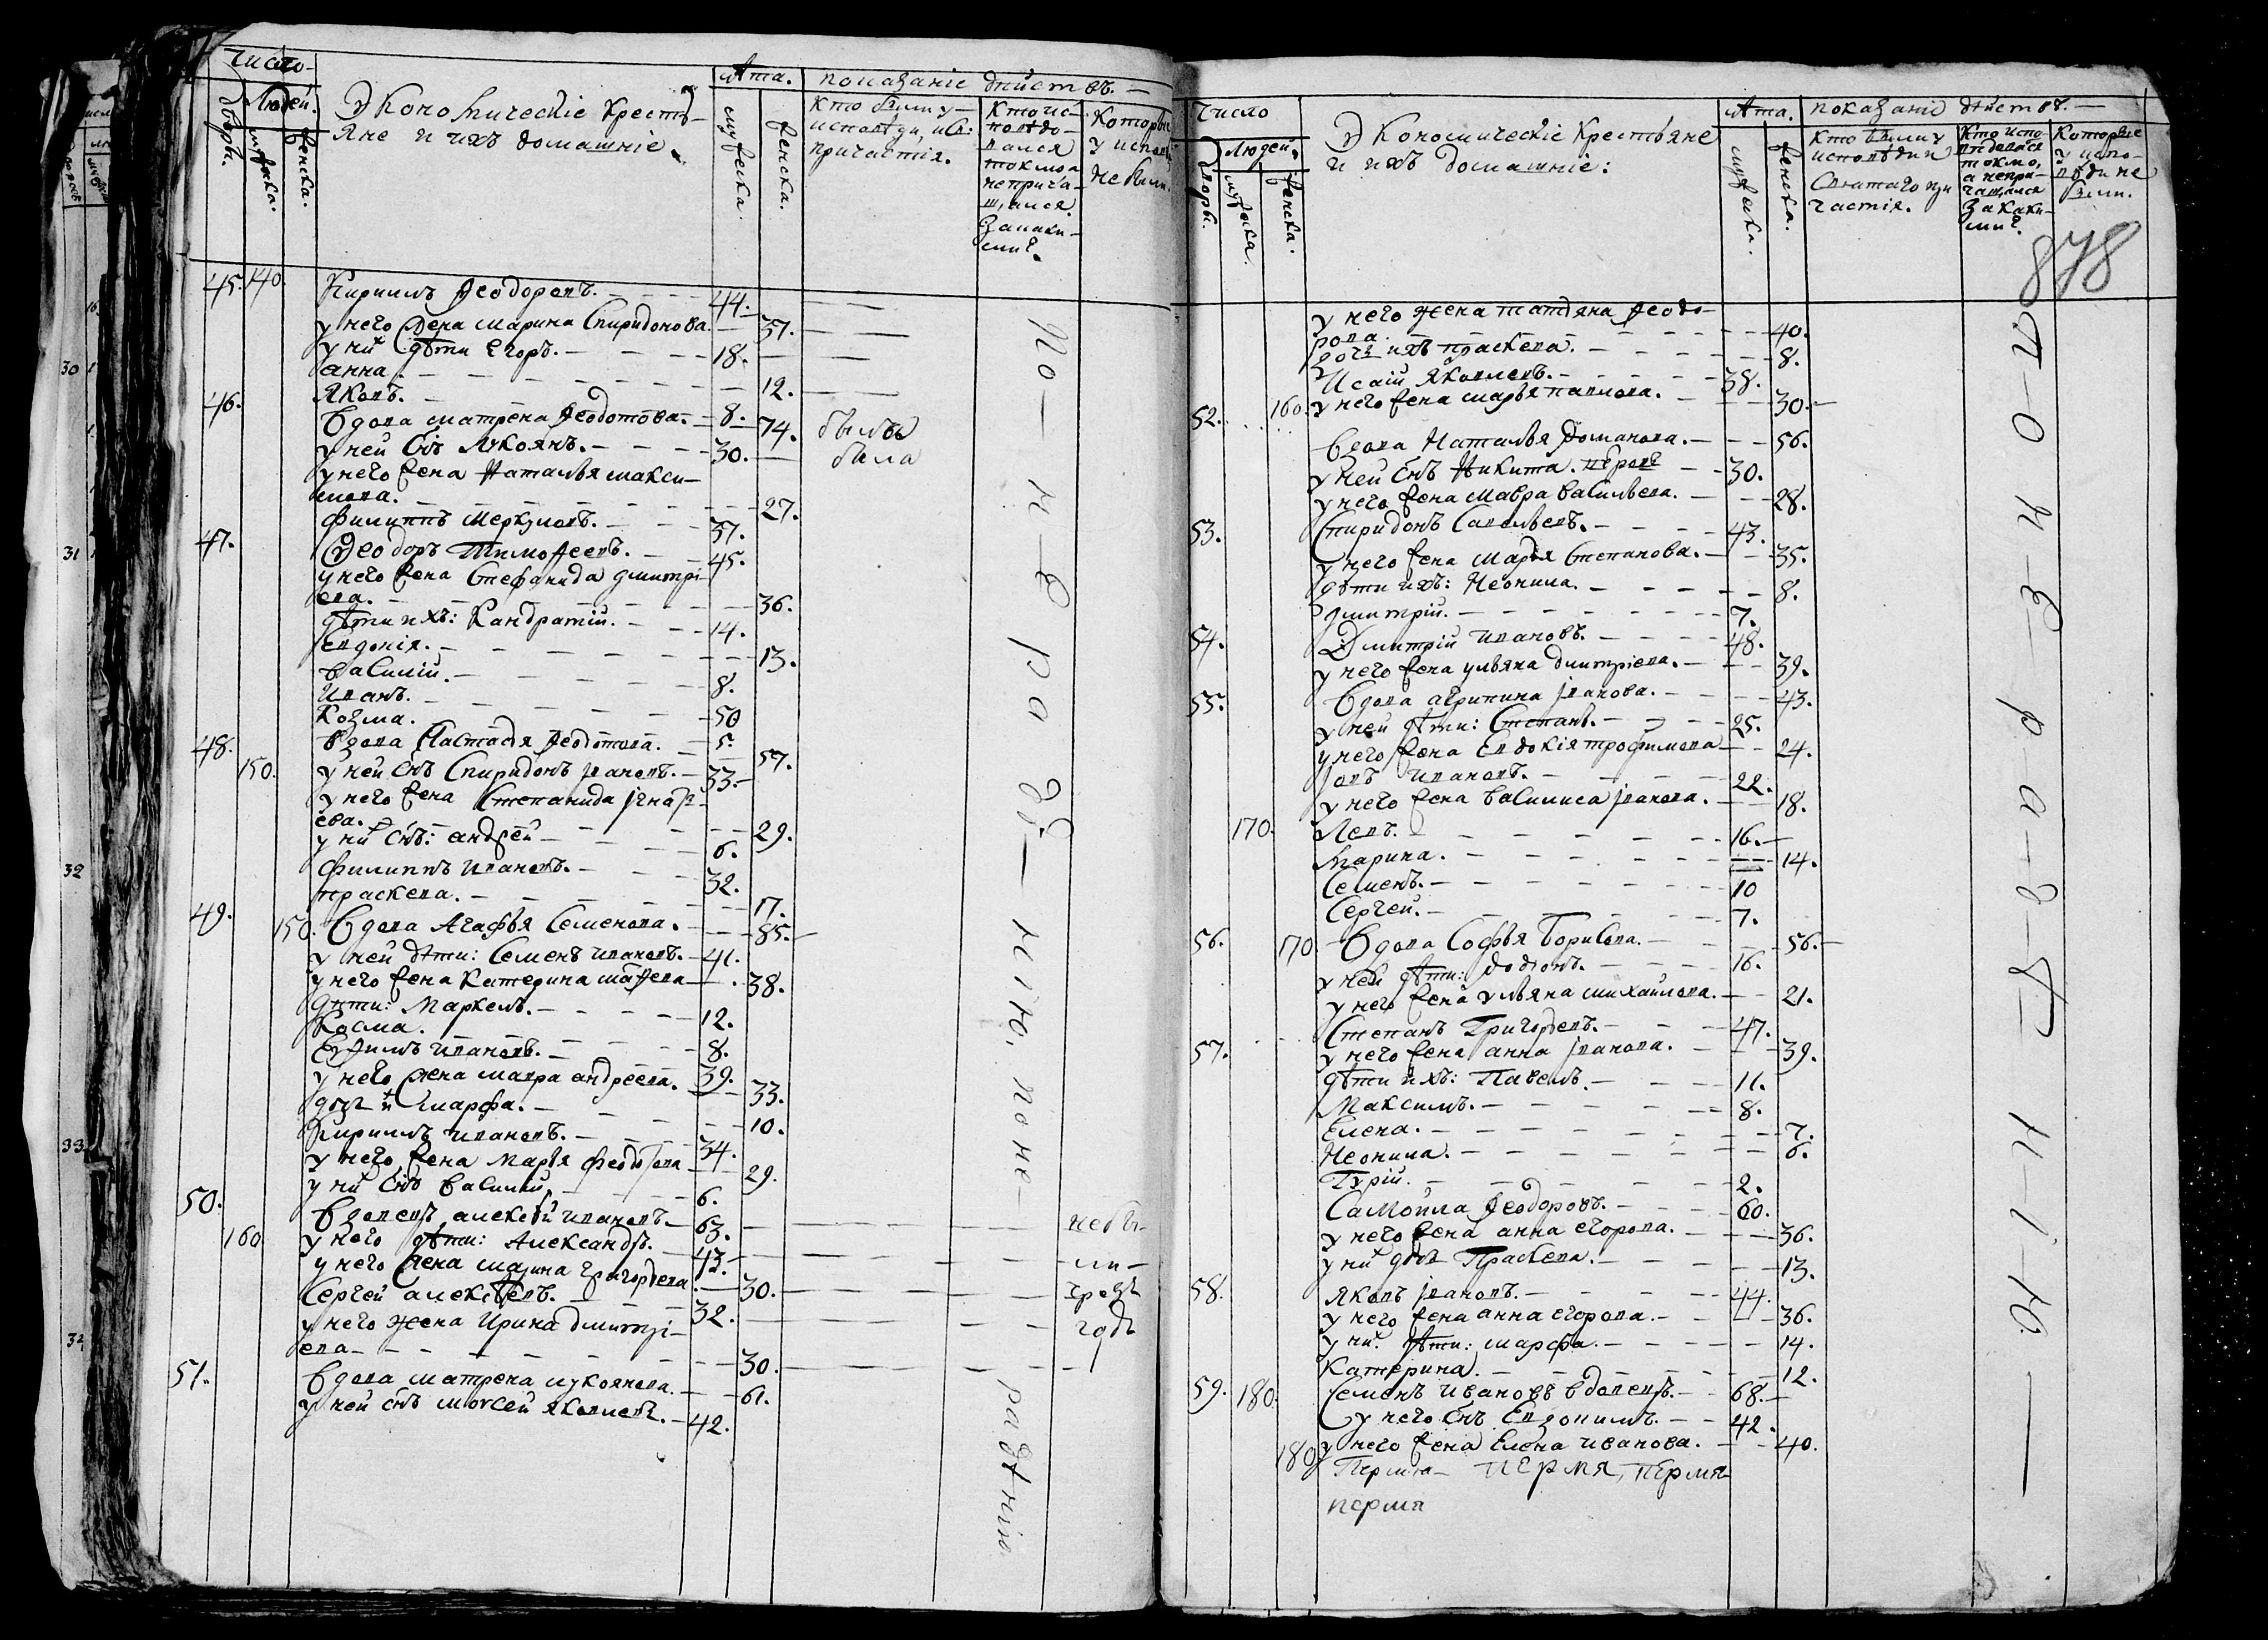 Число
Людей.
Двори.
мужска.
женска.
Экономическіе Кресть-
яне и ихъ домашніе.
Лѣта.
мужеска.
женска.
показаніе дѣйствъ. —
Кто былъ у
исповѣди, и Св:
причастія.
Кто ис-
повѣдо-
вался
токмо а
не прича-
щался
за каки-
ми?
Которы
у исповѣ
не были.
45. 140. Кириллъ Ѳеодоровъ. 44.
у него жена марина Спиридонова. 37.
у них дѣти Егоръ. 18.
анна. 12.
Яковъ. 8.
46. вдова матрена Ѳеодотова. 74. былъ
у ней Сн̃ъ Лукоянъ. 30. была
у него жена Наталья макси-
мова. 27.
филиппъ Меркуловъ. 37.
47. Ѳеодоръ Тимоѳеевъ. 45.
у него жена Стефанида дмитрі-
ева. 36.
дѣти ихъ: Кандратій. 14.
Евдокія. 13.
василій. 8.
Иванъ. 50
Козма. 5.
48. вдова Настасья Ѳеодотова. 57.
150. у ней сн̃ъ Спиридонъ Івановъ. 33.
у него жена Степанида Ігнатъ-
ева. 29.
у них сн̃ъ: андрей 6.
филиппъ Ивановъ. 32.
праскева. 17.
49. 150. вдова Агафья Семенова. 85.
у ней дѣти: Семенъ ивановъ. 41.
у него жена Катерина матвева 38.
дѣти: Маркелъ. 12.
Косма. 8.
Ефимъ ивановъ. 39.
у него жена мавра андреева. 33.
дочь их марфа. 10.
Кириллъ ивановъ. 34.
у него жена Марья феодотова 29.
у них сн̃ъ василій. 6.
50. вдовецъ алексѣй ивановъ. 63. не бы-
160 у него дѣти: Александръ. 43. ли
у него жена марина григорьева 30. чрезъ
Сергей алексѣевъ. 32. годъ
у него жена Ирина дмитрі-
ева 30.
51. вдова матрена лукоянова. 61.
у ней сн̃ъ моѵсей Яковлевъ. 42.
По — н — е ра зу — м ѣ ю, по не — радѣнію
Число
Людей.
Двори.
мужска.
женска.
Экономическіе Крестьяне
и ихъ домашніе:
Лѣта.
мужска.
женска.
показаніе дѣйствъ. —
Кто былъ у
исповѣди и
Святаго при
частія.
Кто испо-
вѣдвался
токмо,
а не при-
чащался
за каки-
ми?
Которые
у испо-
вѣди не
были.
878
у него жена татьяна Ѳеодо-
рова. 40.
дочь ихъ праскева. 8.
Исаій Яковлевъ. 38.
160. у него жена марья павлова. 30.
52. вдова Наталья Романова. 56.
у ней сн̃ъ Никита. 30.
у него жена мавра васильева. 28.
53. Спиридонъ Савельевъ. 43.
у него жена Марья Степанова. 35.
дѣти ихъ: Неонила. 8.
дмитрій. 7.
54. Дмитрій ивановъ. 48.
у него жена ульяна дмитріева. 39.
55. вдова агрипина Іванова. 43.
у ней дѣти: Степанъ. 25.
у него жена Евдокія трофимова 24.
Іовъ Ивановъ. 22.
у него жена василиса Іванова. 18.
170. Левъ. 16.
Марина. 14.
Семенъ. 10
Сергей. 7.
56. 170. вдова Софья Борисова. 56.
у ней дѣти: Родіонъ. 16.
у него жена ульяна михайлова. 21.
Степанъ Григорьевъ. 47.
57. у него жена анна Іванова. 39.
дѣти ихъ: Павелъ. 11.
Максимъ. 8.
Елена. 7.
Неонила. 6.
Гурій. 2.
Самойла Ѳеодоровъ. 60.
у него жена анна егорова. 36.
у них дочь Праскева. 13.
58. Яковъ Івановъ. 44.
у него жена анна егорова. 36.
у них дѣти: марфа. 14.
Катерина. 12.
59. 180. Семенъ Ивановъ вдовецъ. 68.
у него сн̃ъ Евдокимъ. 42.
180 у него жена Елена иванова. 40.
Пермя — пермя, пермя
пермя